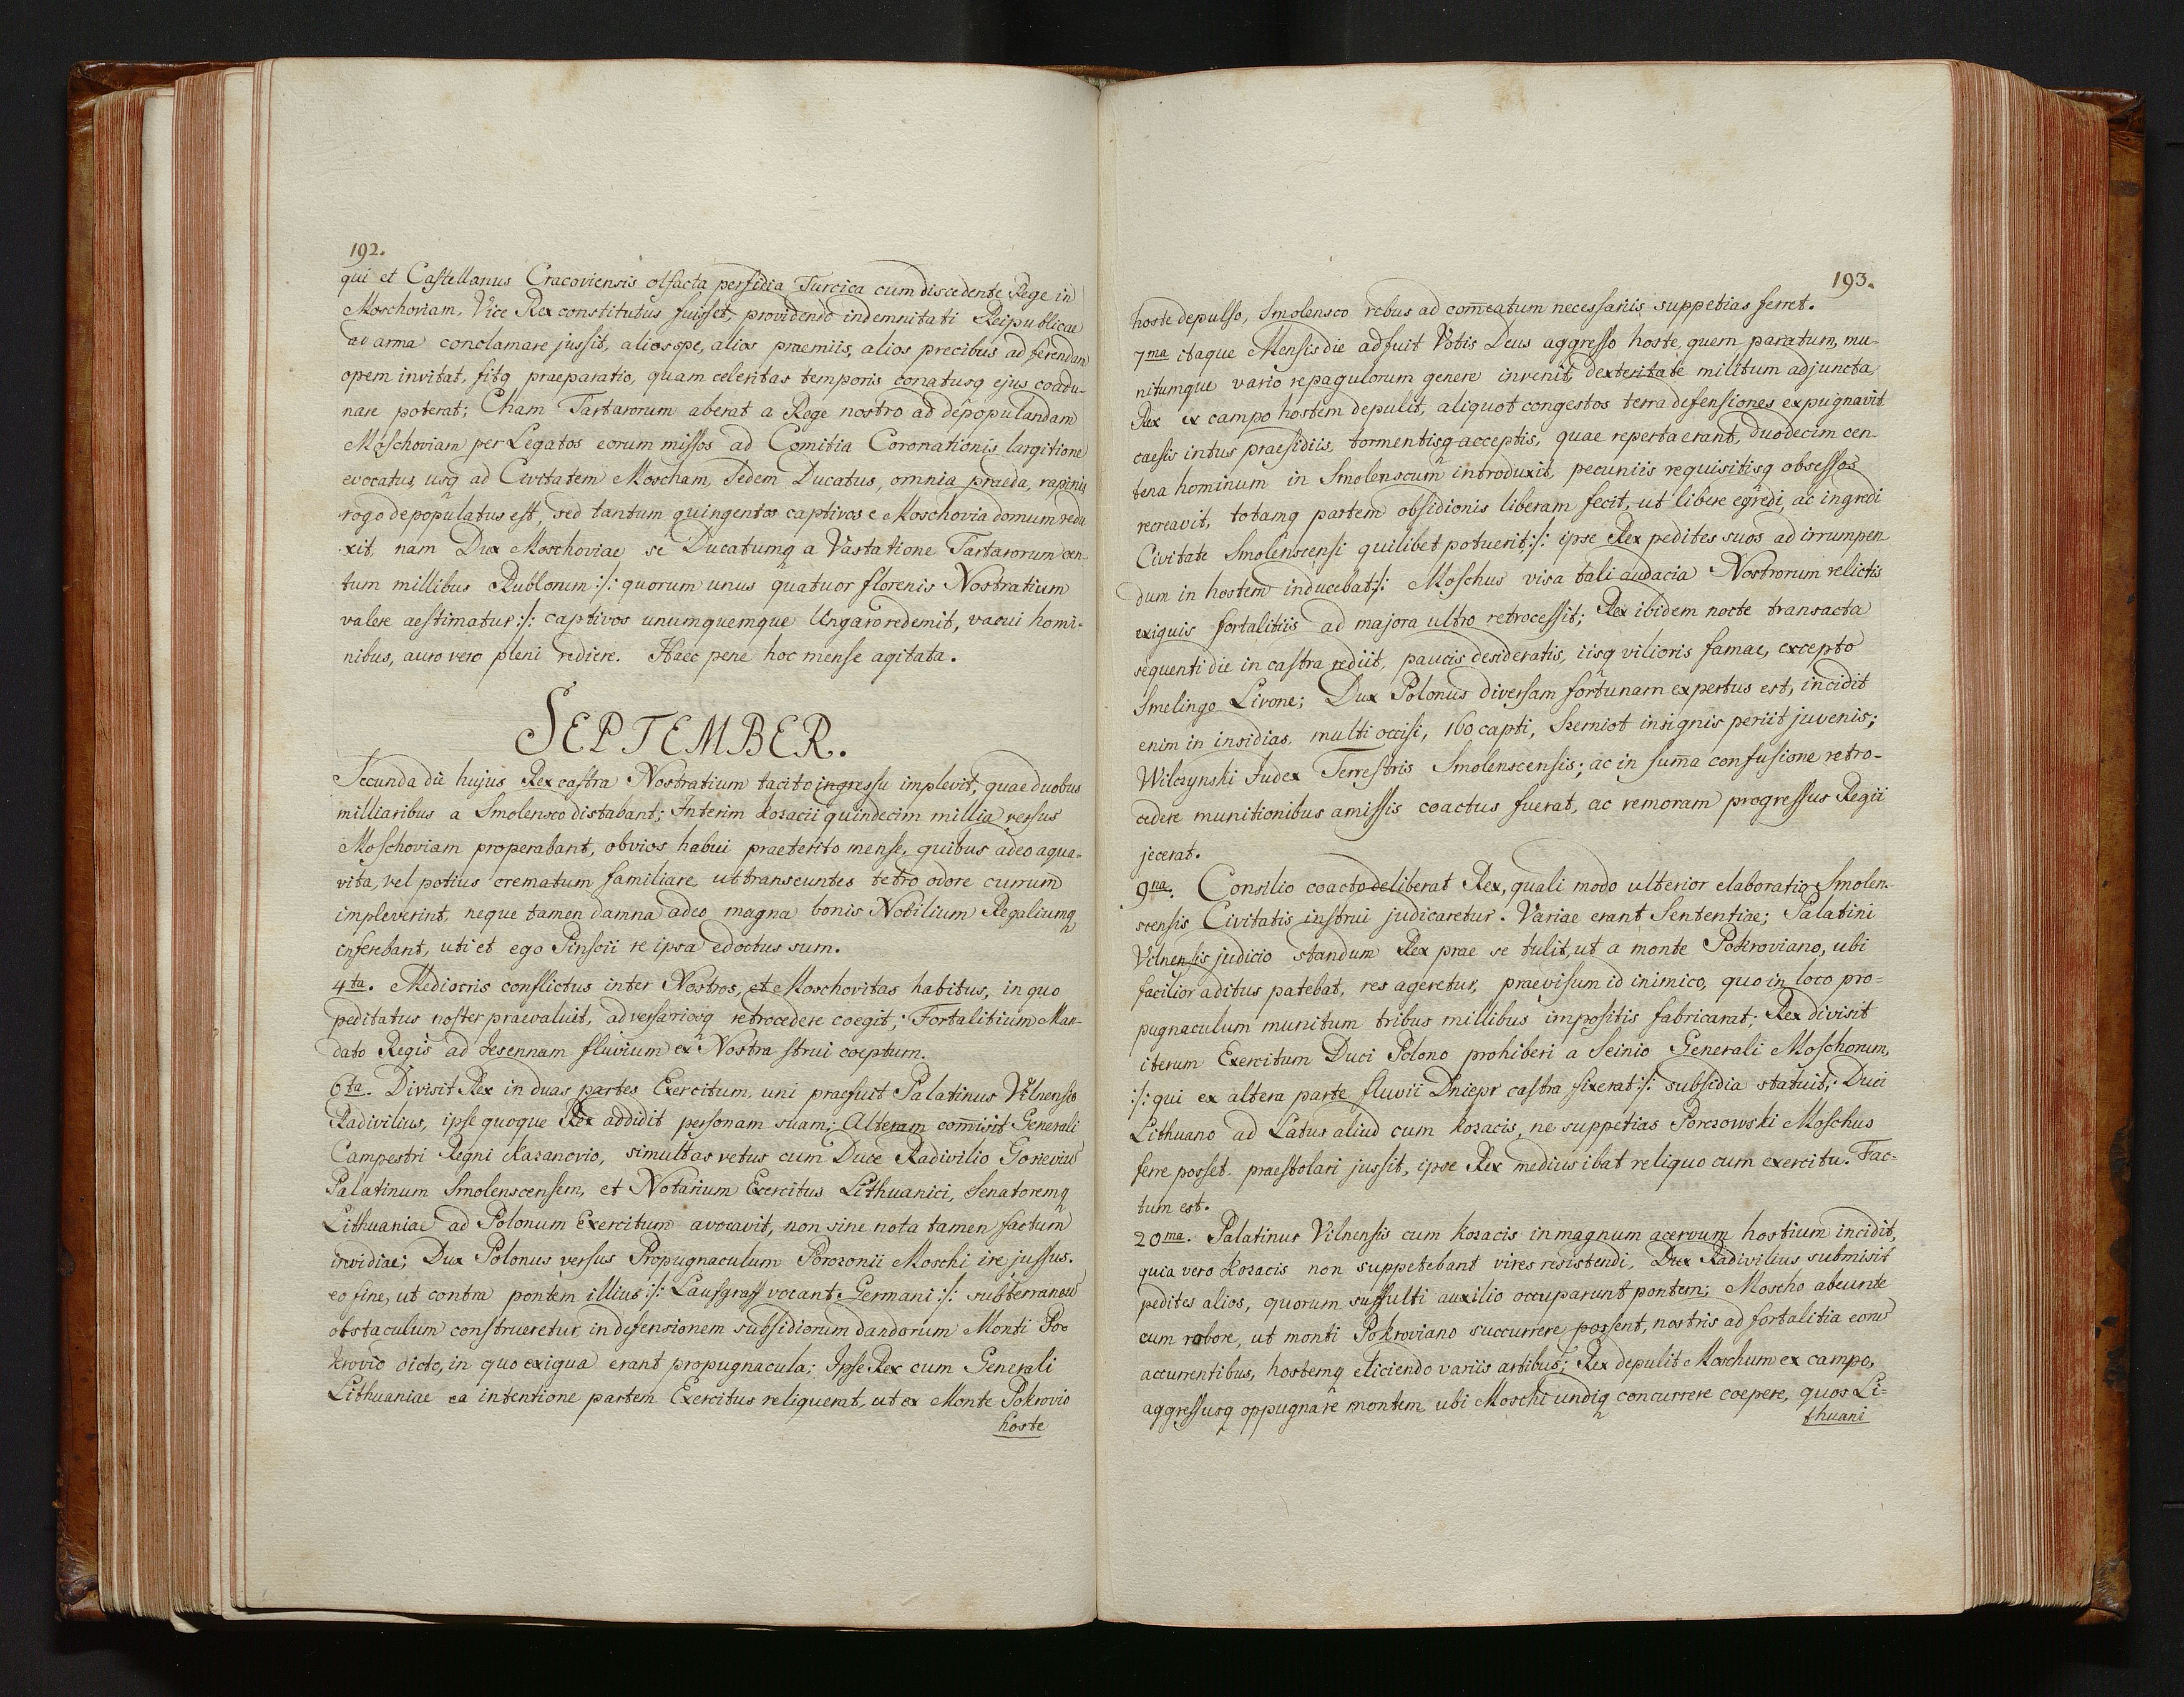 192.
qui et Castellanus Cracoviensis olfacta perfidia Turcica cum discedente Rege in
Moschoviam, Vice Rex constitutus fuisset, providendo indemnitati Reipublicae
ad arma conclamare jussit, alios spe, alios praemiis, alios precibus ad ferendam
opem invitat, fitq praeparatio, quam celeritas temporis conatusq ejus coadu-
nare poterat; Cham Tartarorum aberat a Rege nostro ad depopulandam
Moschoviam per Legatos eorum missos ad Comitia Coronationis largitione
evocatus, usq ad Civitatem Moscham, Sedem Ducatus, omnia praeda, rapinis
rogo depopulatus est, sed tantum quingentos captivos e Moschovia domum redu
xit, nam Dux Moschoviae se Ducatumq a Vastatione Tartarorum cen-
tum millibus Rublorum :/: quorum unus quatuor florenis Nostratium
valere aestimatur :/: captivos unumquemque Ungaro redemit, vacui homi-
nibus, auro vero pleni rediere. Haec pene hoc mense agitata.
SEPTEMBER.
Secunda die hujus Rex castra Nostratium tacito ingressu implevit, quae duobus
milliaribus a Smolensco distabant; Interim Kozacii quindecim millia versus
Moschoviam properabant, obvios habui praeterito mense, quibus adeo aqua-
vita, vel potius crematum familiare, ut transeuntes tetro odore currum
impleverint, neque tamen damna adeo magna bonis Nobilium Regaliumq
inferebant, uti et ego Pinscii re ipsa edoctus sum.
4ta. Mediocris conflictus inter Nostros, et Moschovitas habitus, in quo
peditatus noster praevaluit, adversariosq retrocedere coegit; Fortalitium Man-
dato Regis ad Jesennam fluvium ex Nostra strui coeptum.
6ta. Divisit Rex in duas partes Exercitum, uni praefuit Palatinus Vilnensis
Radivilius, ipse quoque Rex addidit personam suam; Alteram com̄isit Generali
Campestri Regni Kazanovio, simultas vetus cum Duce Radivilio Gosievium
Palatinum Smolenscensem, et Notarium Exercitus Lithuanici, Senatoremq
Lithuaniae ad Polonum Exercitum avocavit, non sine nota tamen factum
invidiae; Dux Polonus versus Propugnaculum Porozonii Moschi ire jussus.
eo fine, ut contra pontem illius :/: Laufgraff vocant Germani :/: subterraneum
obstaculum construeretur, in defensionem subsidiorum dandorum Monti Po=
krovio dicto, in quo exigua erant propugnacula; Ipse Rex cum Generali
Lithuaniae ea intentione partem Exercitus reliquerat, ut ex Monte Pokrovio
hoste
193.
hoste depulso, Smolensco rebus ad com̄eatum necessariis suppetias ferret.
7ma itaque Mensis die adfuit Votis Deus aggresso hoste, quem paratum, mu-
nitumque vario repagulorum genere invenit, dexteritate militum adjuncta
Rex ex campo hostem depulit, aliquot congestos terra defensiones expugnavit
caesis intus praesidiis, tormentisq acceptis, quae reperta erant, duodecim cen-
tena hominum in Smolenscum introduxit, pecuniis requisitisq obsessos
recreavit, totamq partem obsidionis liberam fecit, ut libere egredi, ac ingredi
Civitate Smolenscensi quilibet potuerit :/: ipse Rex pedites suos ad irrumpen
dum in hostem inducebat :/: Moschus visa tali audacia Nostrorum relictis
exiguis fortalitiis ad majora ultro retrocessit; Rex ibidem nocte transacta
sequenti die in castra rediit, paucis desideratis, iisq vilioris famae, excepto
Smelingo Livone; Dux Polonus diversam fortunam expertus est, incidit
enim in insidias, multi occisi, 160 capti, Szemiot insignis periit juvenis;
Wilczynski Judex Terrestris Smolenscensis; ac in sum̄a confusione retro-
cedere munitionibus amissis coactus fuerat, ac remoram progressus Regii
jecerat.
9na. Consilio coacto deliberat Rex, quali modo ulterior elaboratio Smolen-
scensis Civitatis instrui judicaretur. Variae erant Sententiae; Palatini
Vilnensis judicio standum Rex prae se tulit, ut a monte Pokroviano, ubi
facilior aditus patebat, res ageretur, praevisum id inimico, quo in loco pro=
pugnaculum munitum tribus millibus impositis fabricarat; Rex divisit
iterum Exercitum Duci Polono prohiberi a Seinio Generali Moschorum,
:/: qui ex altera parte fluvii Dniepr castra fixerat :/: subsidia statuit; Duci
Lithuano ad Latus aliud cum Kozacis, ne suppetias Porozowski Moschus
ferre posset, praestolari jussit, ipse Rex medius ibat reliquo cum exercitu. Fac-
tum est.
20ma. Palatinus Vilnensis cum Kozacis in magnum acervum hostium incidit,
quia vero Kozacis non suppetebant vires resistendi, Dux Radivilius submisit
pedites alios, quorum suffulti auxilio occuparunt pontem; Moscho abeunte
cum robore, ut monti Pokroviano succurrere possent, nostris ad fortalitia eorum
accurrentibus, hostemq eliciendo variis artibus; Rex depulit Moschum ex campo,
aggressusq oppugnare montem, ubi Moschi undiq concurrere coepere, quos Li-
thuani